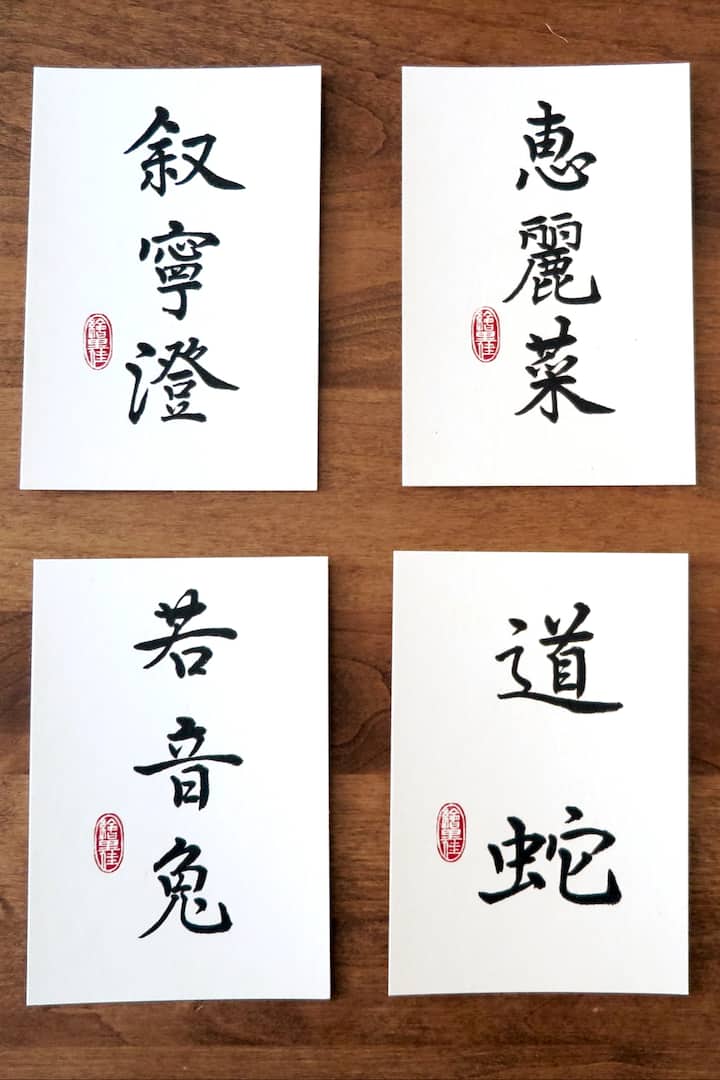 叙寧澄
恵麗菜
若音兔
道蛇